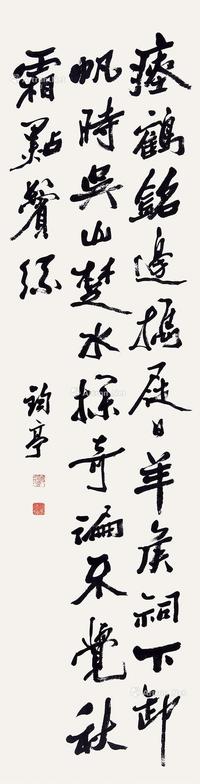 瘞鶴銘邊攜屐日羊侯祠下卸
帆時吳山楚水探奇遍不覺秋
霜點鬢絲
鈞亭